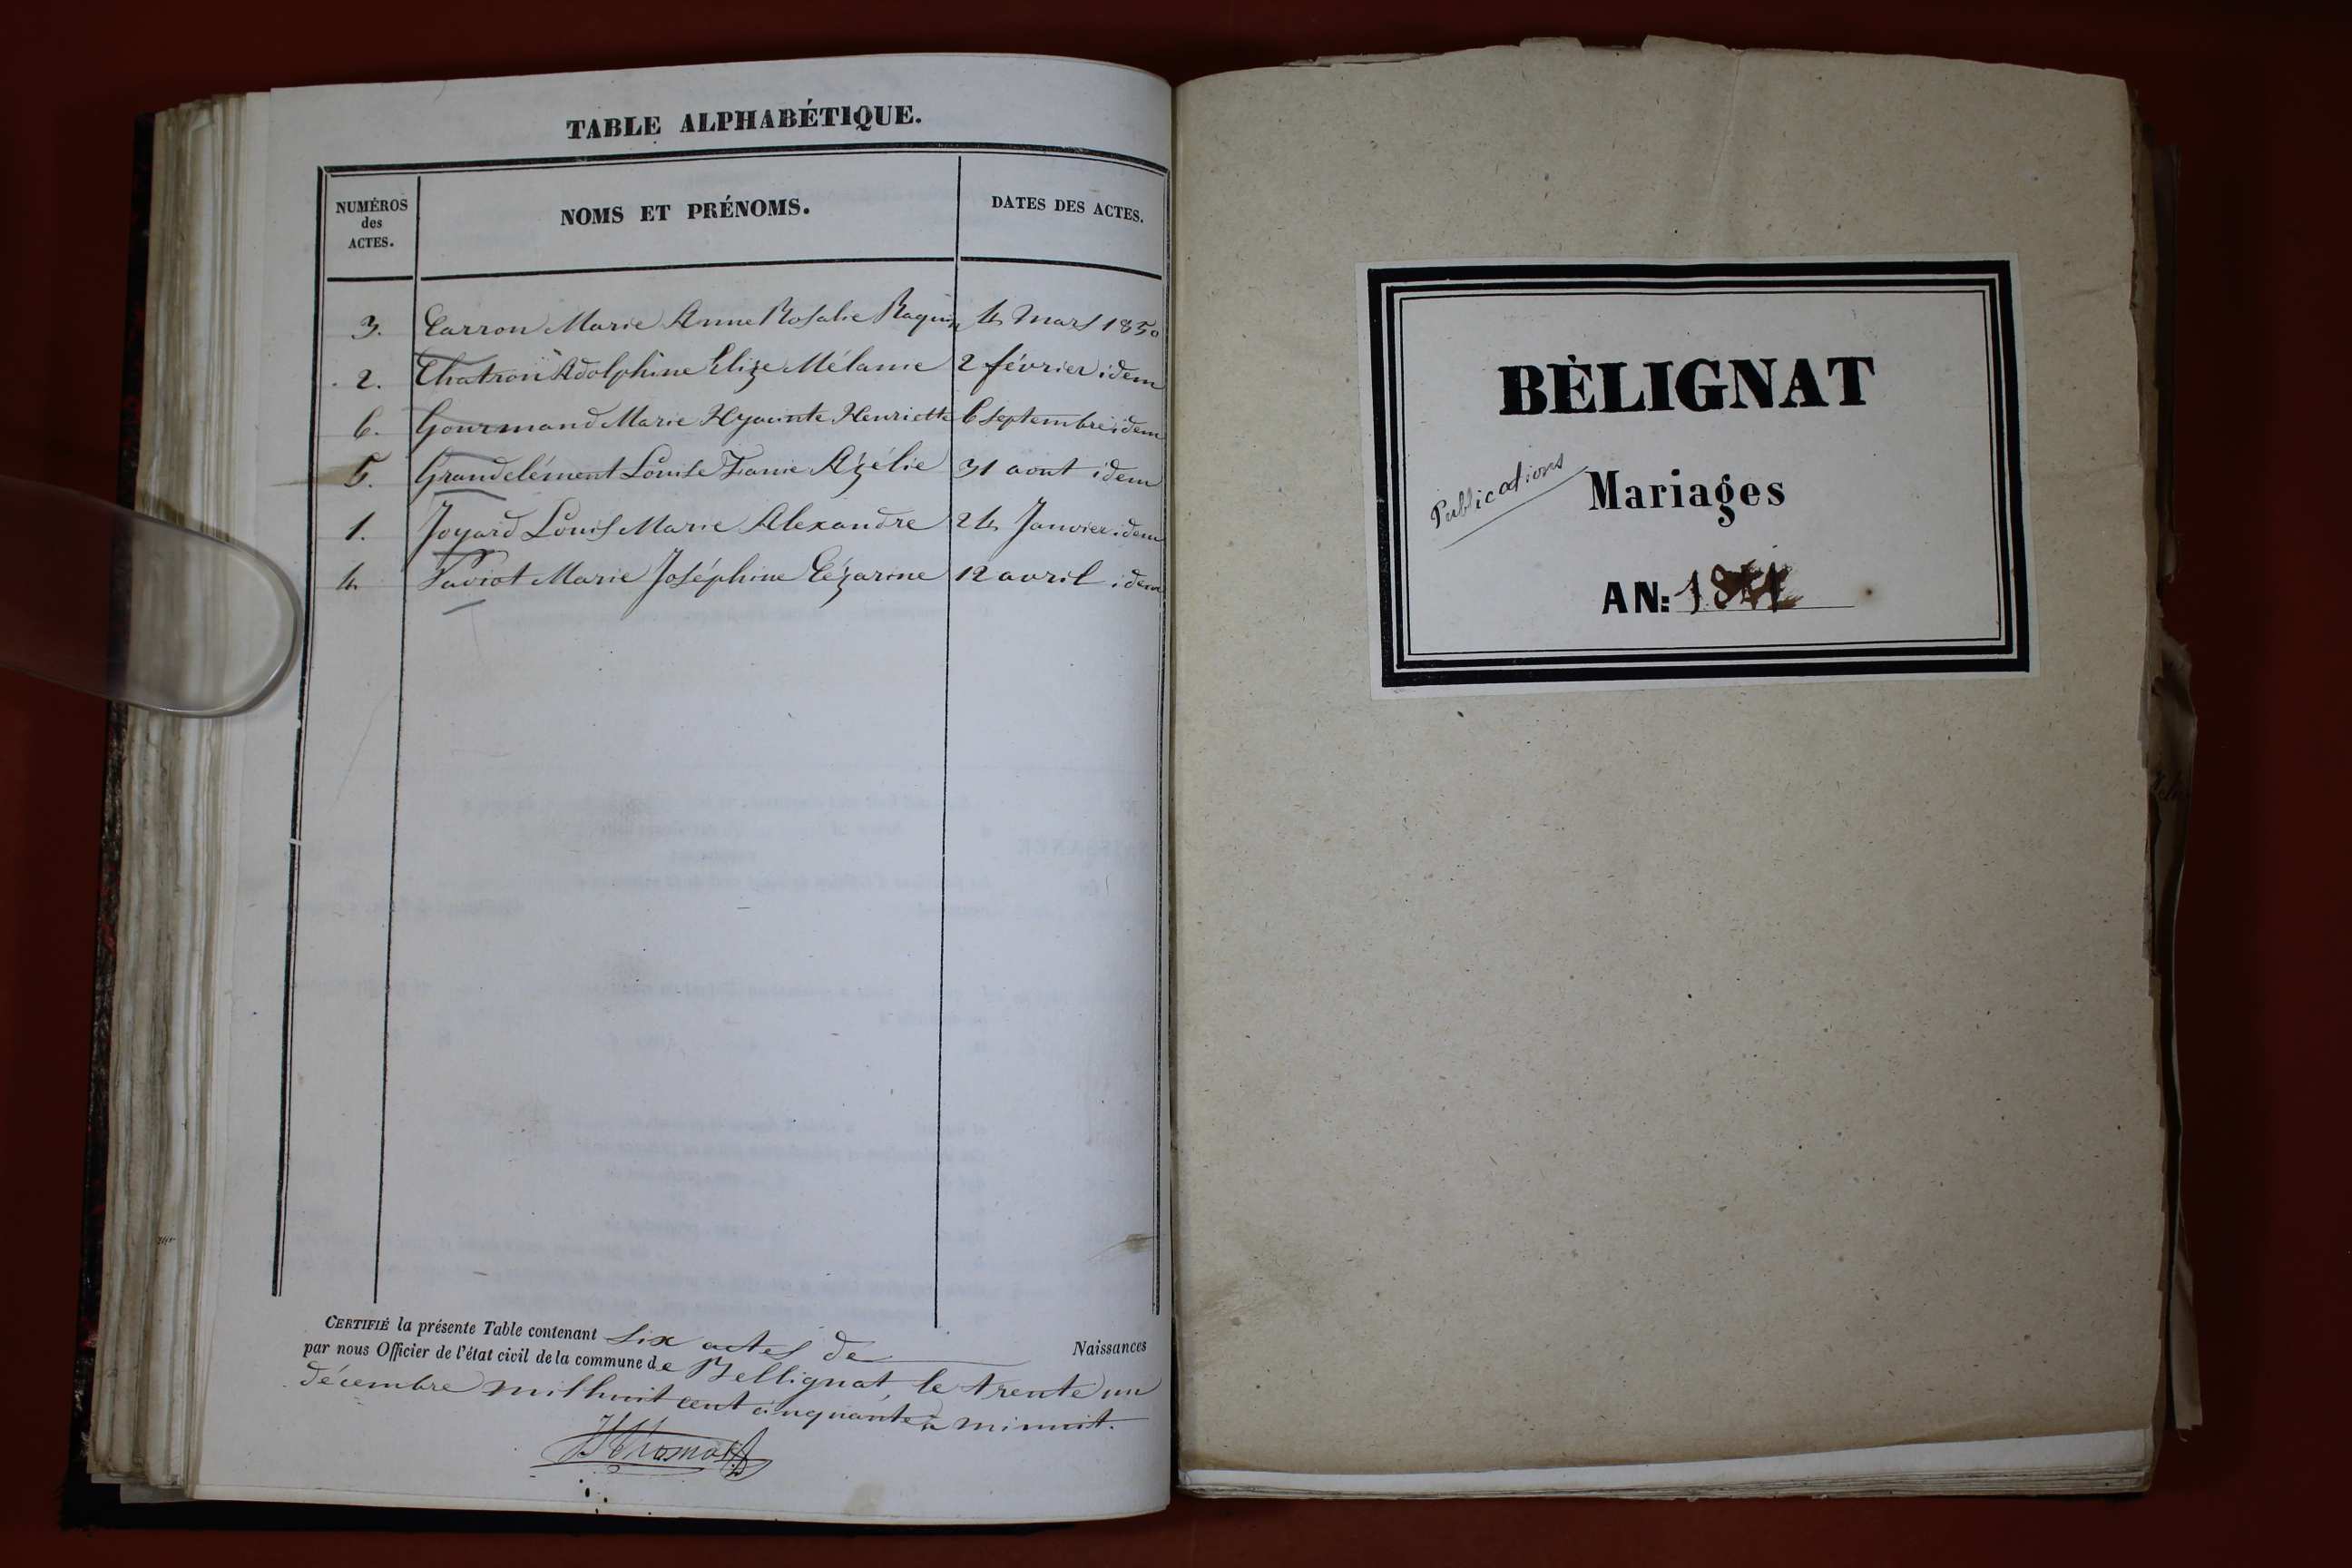 TABLE ALPHABÉTIQUE.
NUMÉROS des ACTES.
NOMS ET PRÉNOMS.
DATES DES ACTES.
3. Carron Marie Anne Rosalie 4 Mars 1850
2. Chatron Adolphine Elize Mélanie 2 février idem
6. Gourmand Marie Hyacinte Henriette 6 septembre idem
5. Grandclément Louise Fanie Azélie 31 aout idem
1. Joyard Louis Marie Alexandre 24 Janvier idem
4. Taviot Marie Joséphine Cézarine 12 avril idem
CERTIFIÉ la présente Table contenant six actes de Naissances
par nous Officier de l'état civil de la commune de Bellignat, le trente un
décembre mil huit cent cinquante à minuit.
BÈLIGNAT
Publications
Mariages
AN: